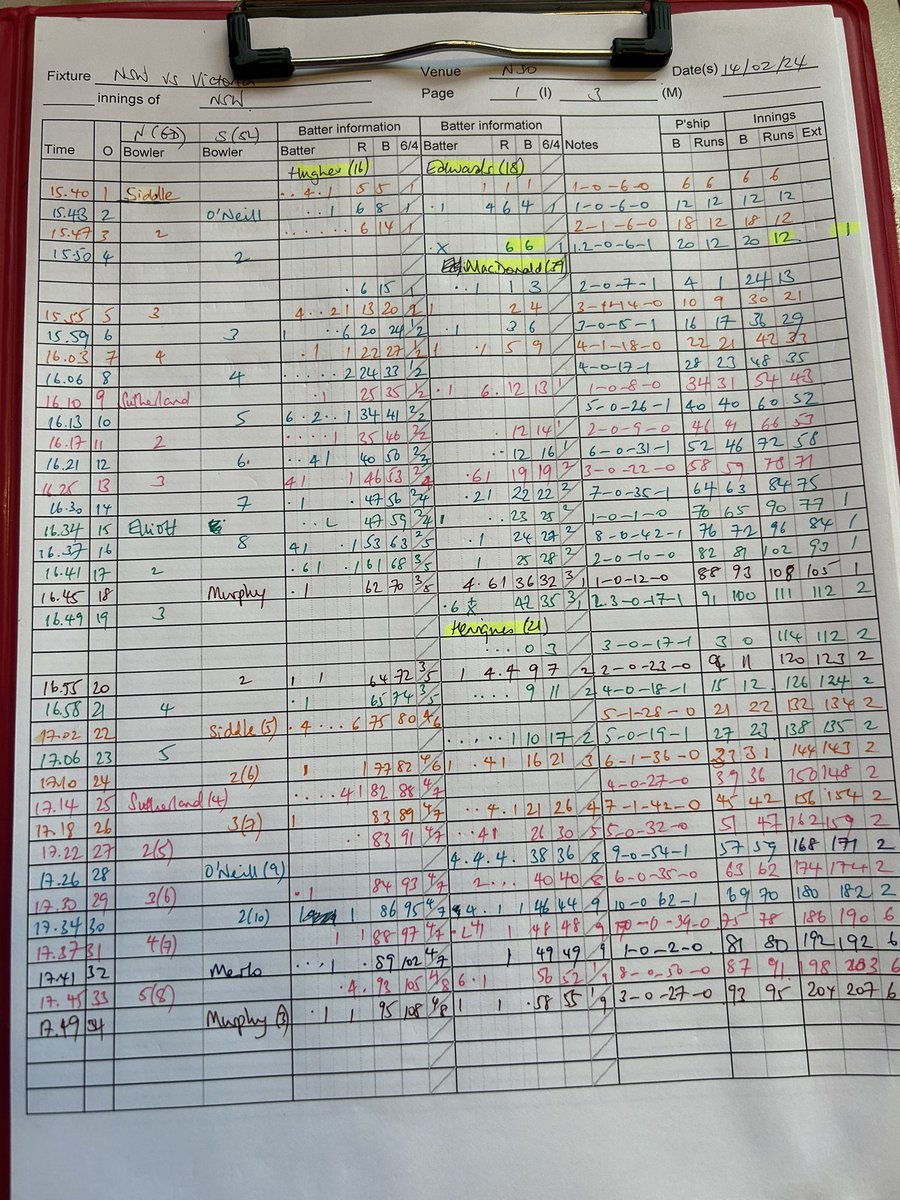 Fixture NSW vs Victoria Venue NSO Date(s) 14/02/24
innings of NSW Page 1 (I) 3 (M)
N (GD) S (SL) Batter information Batter information P'ship Innings
Time O Bowler Bowler Batter R B 6/4 Batter R B 6/4 Notes B Runs B Runs Ext
Hughes (16) Edwards (18)
15.40 1 Siddle . . 4 . 1 5 5 1 1 1 1 1-0-6-0 6 6 6 6
15.43 2 O'Neill . . . 1 6 8 1 . 1 4 6 4 1 1-0-6-0 12 12 12 12
15.47 3 2 . . . . . . 6 14 1 2-1-6-0 18 12 18 12
15.50 4 2 . X 6 6 1 1.2-0-6-1 20 12 20 12 1
MacDonald
. 6 15 1 . . 1 1 3 2-0-7-1 4 1 24 13
15.55 5 3 4 . . 2 1 13 20 1/2 1 2 4 10 9 30 21
15.59 6 3 1 . . 6 20 24 1/2 . 1 3 6 3-0-15-1 16 17 36 29
16.03 7 4 . 1 1 22 27 1/2 1 . 1 5 9 4-1-18-0 22 21 42 33
16.06 8 4 . . . . . 2 24 33 1/2 4-0-17-1 28 23 48 35
16.10 9 Sutherland . 1 25 35 1/2 . 1 6 . 12 13 1 1-0-8-0 34 31 54 43
16.13 10 5 6 . 2 . . 1 34 41 2/2 5-0-26-1 40 40 60 52
16.17 11 2 . . . . . 1 35 46 2/2 . 12 14 1 2-0-9-0 46 41 66 53
16.21 12 6 . . 4 1 40 50 . . 12 16 1 6-0-31-1 52 46 72 58
16.25 13 3 4 1 1 46 53 2/4 . 6 1 19 19 2 3-0-22-0 58 59 78 71
16.30 14 7 . 1 . 47 56 2/4 . 2 1 22 22 2 7-0-35-1 64 63 84 75
16.34 15 Elliott . . L 47 59 2/4 1 . . 23 25 2 1-0-1-0 70 65 90 77 1
16.37 16 8 4 1 . 1 53 63 2/5 . 1 24 27 2 8-0-42-1 76 72 96 84 1
16.41 17 2 . 6 1 . 1 61 68 3/5 1 25 28 2 2-0-10-0 82 81 102 93 1
16.45 18 Murphy . 1 62 70 3/5 4 . 6 1 36 32 3/1 1-0-12-0 88 93 108 105 1
16.49 19 3 . 6 X 42 35 3/1 2.3-0-17-1 91 100 111 112 2
Henriques (21)
. . . 0 3 3-0-17-1 3 0 114 112 2
16.55 20 2 1 1 64 72 3/5 1 4 . 4 9 7 2 2-0-23-0 11 120 123 2
16.58 21 4 . 1 65 74 3/5 . . . . 9 11 2 4-0-18-1 15 12 126 124 2
17.02 22 Siddle (5) . 4 . . . 6 75 80 4/6 5-1-28-0 21 22 132 134 2
17.06 23 5 . . . . . 1 10 17 2 5-0-19-1 27 23 138 135 2
17.10 24 2(6) 1 1 77 82 4/6 1 . 4 1 16 21 3 6-1-36-0 33 31 144 143 2
17.14 25 Sutherland (4) . . . . 4 1 82 88 4/7 4-0-27-0 39 36 150 148 2
17.18 26 3(7) 1 83 89 4/7 . . 4 . 1 21 26 4 7-1-42-0 45 42 156 154 2
17.22 27 2(5) . . 83 91 4/7 . . 4 1 26 30 5 5-0-32-0 51 47 162 159 2
17.26 28 O'Neill (9) 4 . 4 . 4 . 38 36 8 9-0-54-1 57 59 168 171 2
17.30 29 3(6) . 1 84 93 4/7 2 . . . 40 40 8 6-0-35-0 63 62 174 174 2
17.34 30 2(10) 1 86 95 4/7 4 . 1 1 46 44 9 10-0-62-1 69 70 180 182 2
17.37 31 4(7) 1 1 88 97 4/7 1 48 48 9 75 78 186 190 6
17.41 32 Merlo . . . 1 . 89 102 4/7 1 49 49 9 1-0-2-0 81 80 192 192 6
17.45 33 5(8) . 4 . 93 105 4/8 6 . 1 56 52 1/9 8-0-50-0 87 91 198 203 6
17.49 34 Murphy (3) . 1 1 95 108 4/8 1 1 . 58 55 1/9 3-0-27-0 93 95 204 207 6